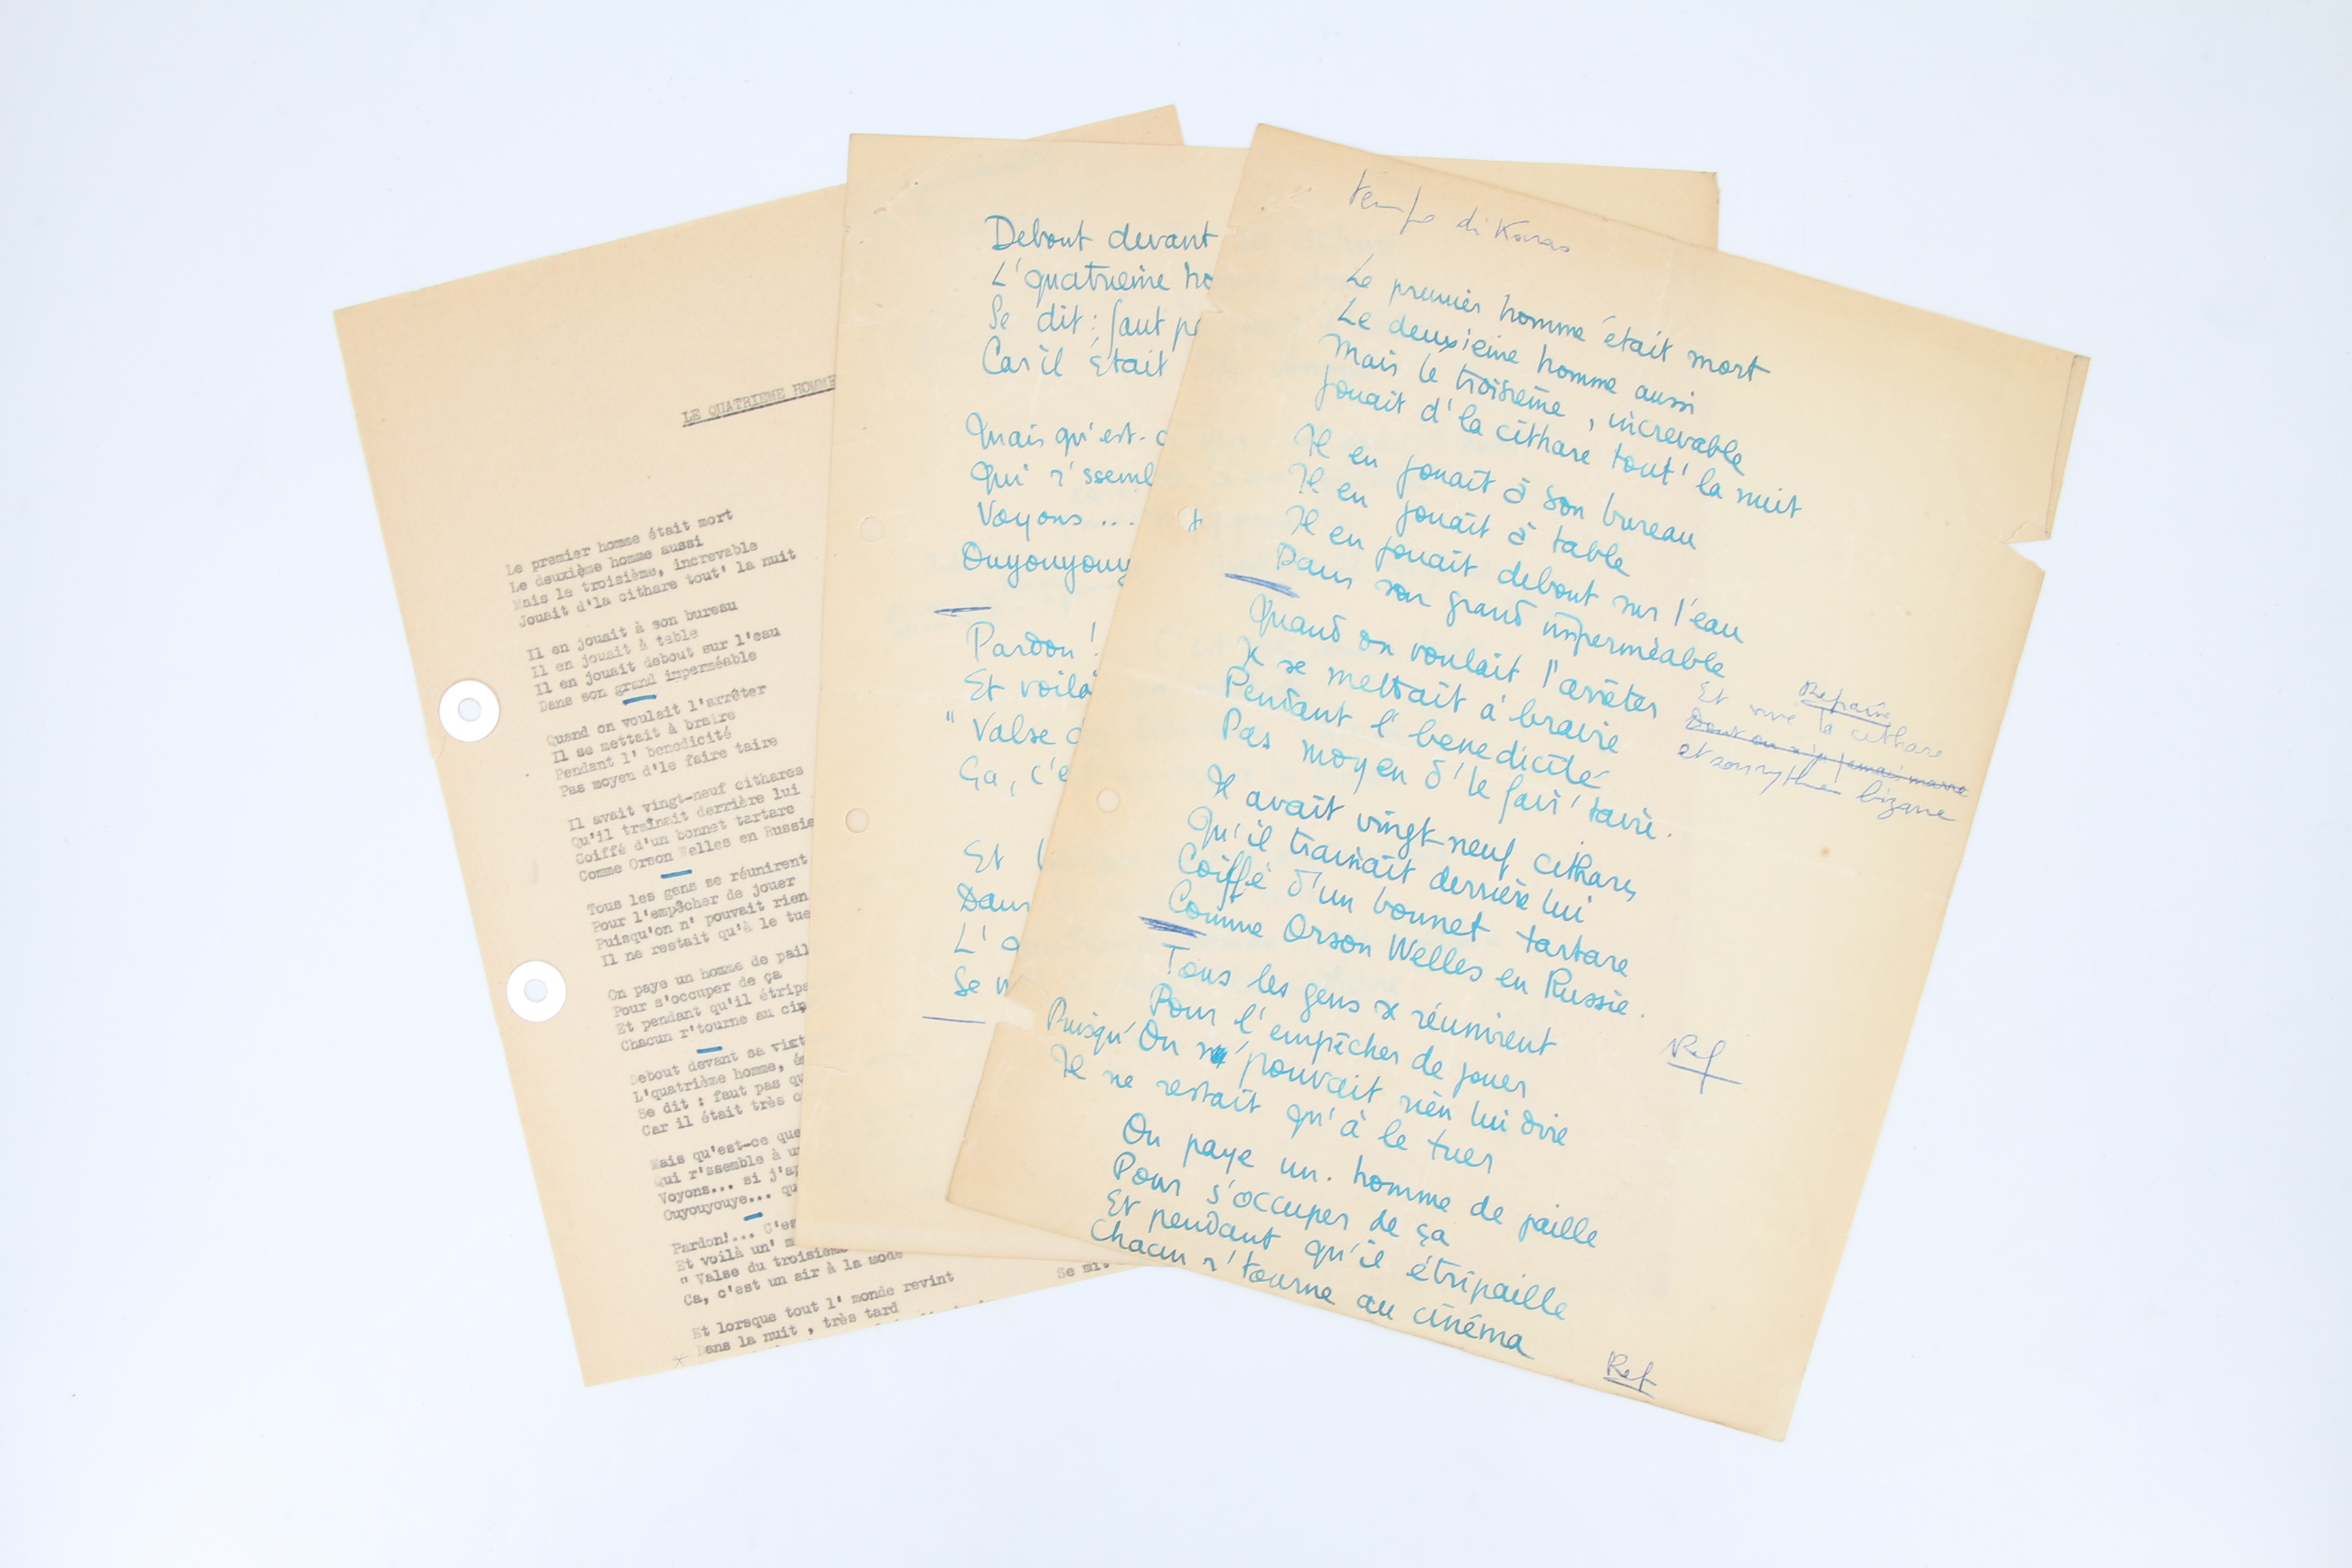 LE QUATRIEME HOMME
Le premier homme était mort
Le deuxième homme aussi
Mais le troisième, increvable
Jouait d'la cithare tout' la nuit
Il en jouait à son bureau
Il en jouait à table
Il en jouait debout sur l'eau
Dans son grand imperméable
Quand on voulait l'arrêter
Il se mettait à braire
Pendant l' benedicité
Pas moyen d'le faire taire
Il avait vingt-neuf cithares
Qu'il traînait derrière lui
Coiffé d'un bonnet tartare
Comme Orson Welles en Russie
Tous les gens se réunirent
Pour l'empêcher de jouer
Puisqu'on n' pouvait rien
Il ne restait qu'à le tue
On paye un homme de pail
Pour s'occuper de ça
Et pendant qu'il étripa
Chacun r'tourne au ci
Debout devant sa vict
L'quatrième homme, é
Se dit : faut pas qu
Car il était très c
Mais qu'est-ce que
Qui r'ssemble à u
Voyons... si j'ap
Ouyouyouye... qu
Pardon!... C'es
Et voilà un' m
" Valse du troisième
Ca, c'est un air à la mode
Et lorsque tout l' monde revint
Dans la nuit , très tard
Se mit
Debout devant
L'quatrième ho
Se dit : faut p
Car il était
Mais qu'est-c
Qui r'ssembl
Voyons ...
Ouyouyouy
Pardon !
Et voilà
" Valse d
Ça, c'e
Et l
Dans
L'q
Se m
tempo di Karas
Le premier homme était mort
Le deuxième homme aussi
Mais le troisième, increvable
Jouait d'la cithare tout' la nuit
Il en jouait à son bureau
Il en jouait à table
Il en jouait debout sur l'eau
Dans son grand imperméable
Quand on voulait l'arrêter
Il se mettait à braire
Pendant l'benedicité
Pas moyen d'le fair' taire.
Refrain
Et vive la cithare
Dont on n'a jamais marre
et son rythme bizarre
Il avait vingt-neuf cithares
Qu'il traînait derrière lui
Coiffé d'un bonnet tartare
Comme Orson Welles en Russie.
Tous les gens se réunirent
Pour l'empêcher de jouer
Puisqu'On n'pouvait rien lui dire
Il ne restait qu'à le tuer
Ref
On paye un homme de paille
Pour s'occuper de ça
Et pendant qu'il étripaille
Chacun r'tourne au cinéma
Ref